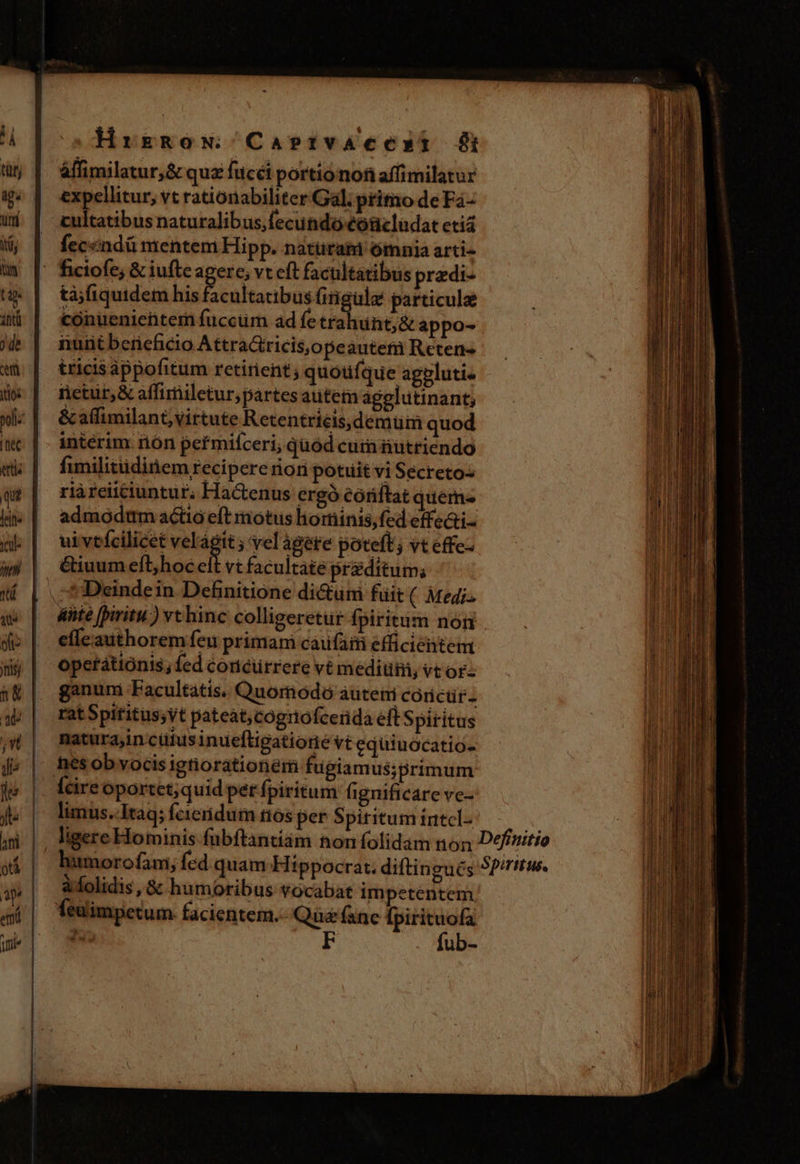 HIERON. CAPIVACCEI 81
assimilatur, & quæ succi portio non assimilatur
expellitur, vt rationabiliter Gal. primo de Fa-
cultatibus naturalibus, secundo concludat etiã
secundũ mentem Hipp. naturam omnia arti-
ficiose, & iuste agere, vt est facultatibus prædi-
ta; siquidem his facultatibus singulæ particulæ
conuenientem succum ad se trahunt, & appo-
nunt beneficio Attractricis, ope autem Reten-
tricis appositum retinent, quousque aggluti-
netur, & assimiletur, partes autem agglutinant,
& assimilant, virtute Retentricis, demum quod
interim non permisceri, quod cum nutriendo
similitudinem recipere non potuit vi Secreto-
ria reiiciuntur. Hactenus ergò constat quem-
admodum actio est motus hominis, sed effecti-
ui vt scilicet vel agit, vel agere potest, vt effe-
ctiuum est, hoc est vt facultate præditum.
Deinde in Definitione dictum fuit ( Medi-
ante spiritu ) vt hinc colligeretur spiritum non
esse authorem seu primam causam efficientem
operationis, sed concurrere vt medium, vt or-
ganum Facultatis. Quomodo autem concur-
rat Spiritus, vt pateat, cognoscenda est Spiritus
natura, in cuius inuestigatione vt equiuocatio-
nes ob vocis ignorationem fugiamus; primum
scire oportet, quid per spiritum significare ve-
limus. Itaq; sciendum nos per Spiritum intel-
ligere Hominis substantiam non solidam non
humorosam, sed quam Hippocrat. distinguẽs
à solidis, & humoribus vocabat impetentem
seu impetum facientem. Quæ sane spirituosa
F sub-
Definitio
Spiritus.